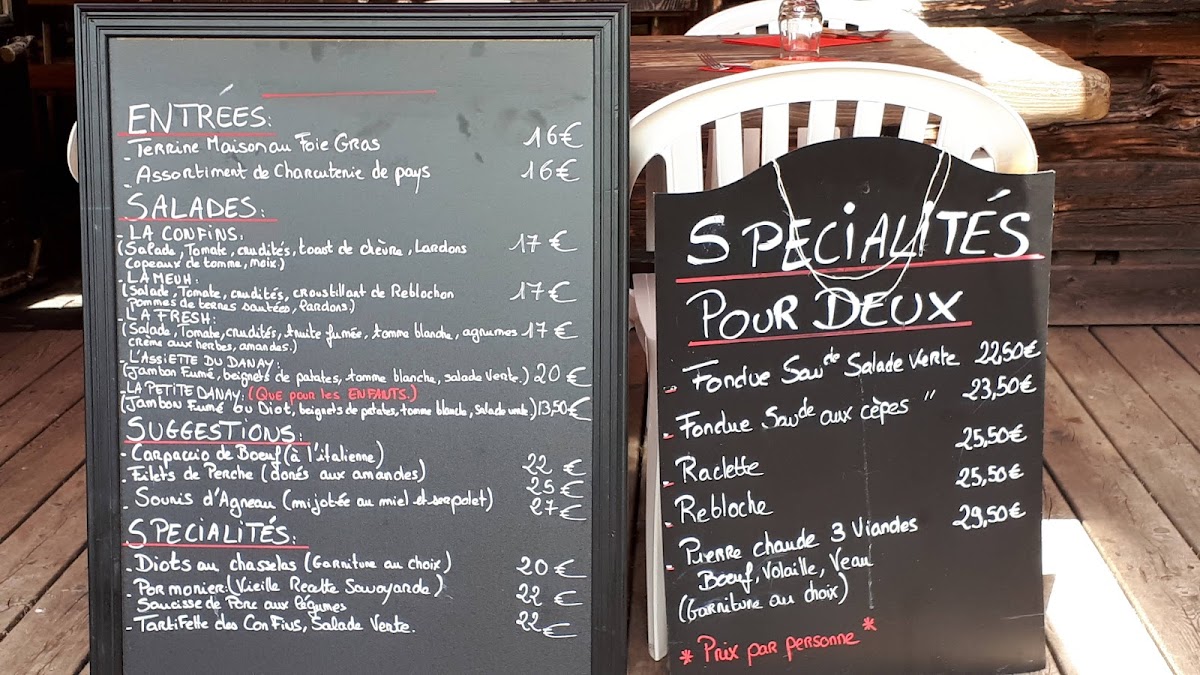 ENTRÉES:
- Terrine Maison au Foie Gras 16€
- Assortiment de Charcuterie de pays 16€
SALADES:
- LA CONFINS:
(Salade, Tomate, crudités, toast de chèvre, Lardons 17€
copeaux de tomme, noix.)
- LA MEUH:
(Salade, Tomate, crudités, croustillant de Reblochon 17€
pommes de terres sautées, lardons.)
- LA FRESH:
(Salade, Tomate, crudités, truite fumée, tomme blanche, agrumes 17€
crème aux herbes, amandes.)
- L'ASSIETTE DU DANAY:
(Jambon Fumé, beignets de patates, tomme blanche, salade verte.) 20€
- LA PETITE DANAY: (QUE pour les ENFANTS.)
(Jambon Fumé ou Diot, beignets de patates, tomme blanche, salade verte) 13,50€
SUGGESTIONS:
- Carpaccio de Boeuf (à l'italienne) 22€
- Filets de Perche (donés aux amandes) 25€
- Souris d'Agneau (mijotée au miel et serpolet) 27€
SPECIALITÉS:
- Diots au chasselas (Garniture au choix) 20€
- Pormonier: (Vieille Recette Savoyarde) 22€
Saucisse de Porc aux légumes
- Tartiflette des Confins, Salade Verte. 22€
SPECIALITÉS
POUR DEUX
- Fondue Savde Salade Verte 22,50€
- Fondue Savde aux cèpes " 23,50€
- Raclette 25,50€
- Rebloche 25,50€
- Pierre chaude 3 Viandes 29,50€
Boeuf, Volaille, Veau
(Garniture au choix)
* Prix par personne *